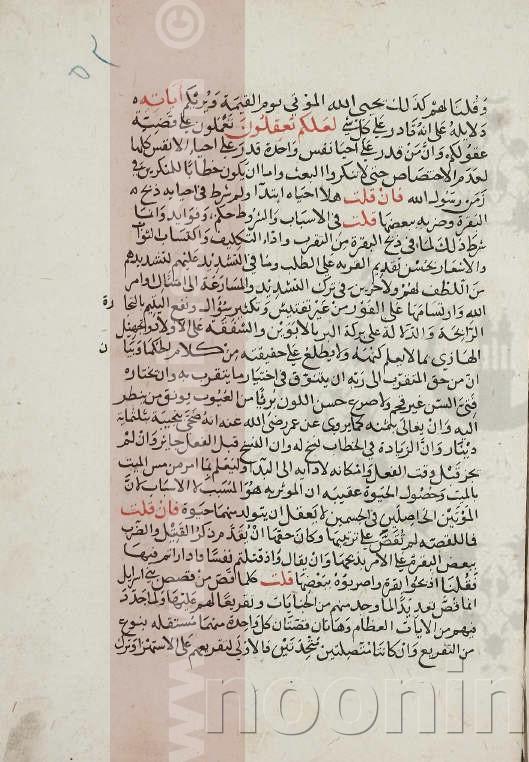 وقلنا لهم كذلك يحيى الله الموتى يوم القيمة ويريكم اياته
ودلايله على انه قادر على كل شى لعلكم تعقلون تعملون على قضية
عقولكم وان من قدر على احيا نفس واحدة قدر على احيا الانفس كلها
لعدم الاختصاص حتى لا تنكروا البعث واما ان يكون خطابا للمنكرين فى
زمن رسول الله فان قلت هلا احياه ابتدا ولم شرط فى احيايه ذبح
البقرة وضربه ببعضها قلت فى الاسباب والشروط حكم وفوايد وانما
شرط ذلك لما فى ذبح البقرة من التقرب واداء التكليف واكتساب الثواب
والاشعار بحسن تقديم القربة على الطلب وما فى التشديد عليهم لتشديدهم
من اللطف لهم ولاخرين فى ترك التشديد والمسارعة الى امتثال اوامر
الله وارتسامها على الفور من غير تفتيش وتكثير سؤال ونفع اليتيم بالتجارة
الرابحة والدلالة على بركة البر بالابوين والشفقة على الاولاد وتجهيل
الهازى بما لا يعلم كنهه ولا يطلع على حقيقته من كلام الحكما وبيان
ان من حق المتقرب الى ربه ان يتنوق فى اختيار ما يتقرب به وان يختاره
فتى السن غير قحم ولا ضرع حسن اللون بريا من العيوب يونق من ينظر
اليه وان يغالى بثمنه كما يروى عن عمر رضى الله عنه انه ضحى بنجيبة بثلثماية
دينار وان الزيادة فى الخطاب نسخ له وان النسخ قبل الفعل جائز وان لم
يجز قبل وقت الفعل وامكانه لادايه الى البدا وليعلم بما امر من مس الميت
بالميت وحصول الحيوة عقيبه ان الموثر هو المسبب لا الاسباب لان
الموتين الحاصلين فى الجسمين لا يعقل ان يتولد منهما حيوة فان قلت
فما للقصة لم تقص على ترتيبها وكان حقها ان يقدم ذكر القتيل والضرب
ببعض البقرة على الامر بذبحها وان يقال واذ قتلتم نفسا فادارأتم فيها
فقلنا اذبحوا بقرة واضربوه ببعضها قلت كلما قص من قصص بنى اسرايل
انما قص تعديدا لما وجد منهم من الجنايات وتقريعا لهم عليها ولما جدد
فيهم من الايات العظام وهاتان قصتان كل واحدة منهما مستقلة بنوع
من التقريع وان كانتا متصلتين متحدتين فالاولى لتقريعهم على الاستهزا وترك
noonin